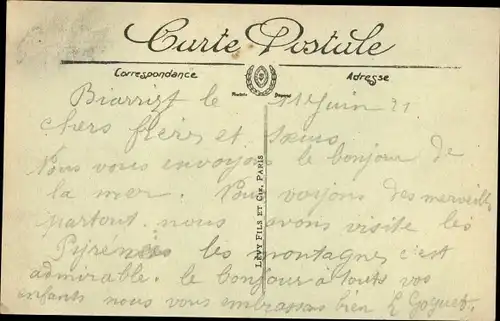 Carte Postale
Correspondance Adresse
Biarrizt le Juin 21
chers frères et Sœurs
Nous vous envoyons le bonjour de
la mer. Nous voyons des merveilles
partout nous avons visite les
Pyrenées les montagnes c'est
admirable. le bonjour à touts vos
enfants nous vous embrassons bien
LEVY FILS ET CIE, PARIS